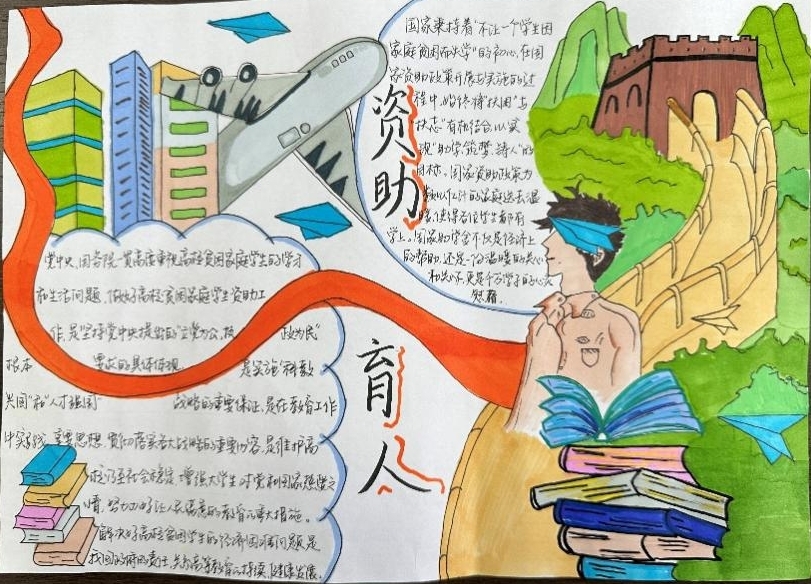 国家秉持着"不让一个学生因
家庭贫困而失学"的初心,在国
家资助政策开展与实施的过
程中,始终将"扶困"与
"扶志"有机结合,以实
现"助学、筑梦、铸人"的
目标。国家资助政策为
数以亿计的家庭送去温
暖,使得各位学生都有
学上。国家助学金不仅是经济上
的帮助,还是一份温暖的关心
和关怀,更是莘莘学子的心灵
慰藉.
资助
党中央、国务院一贯高度重视高校贫困家庭学生的学习
和生活问题,做好高校贫困家庭学生资助工
作,是坚持党中央提出的"立党为公,执 政为民"
根本 要求的具体体现 是实施"科教
兴国"和"人才强国" 战略的重要保证,是在教育工作
中实践 重要思想,贯彻落实 战略的重要内容,是维护高
校乃至社会稳定,增强大学生对党和国家热爱之
情,努力办好让人民满意的教育的重大措施。
解决好高校贫困学生的经济困难问题是
我国政府的责任,关系高等教育的持续、健康发展.
育人